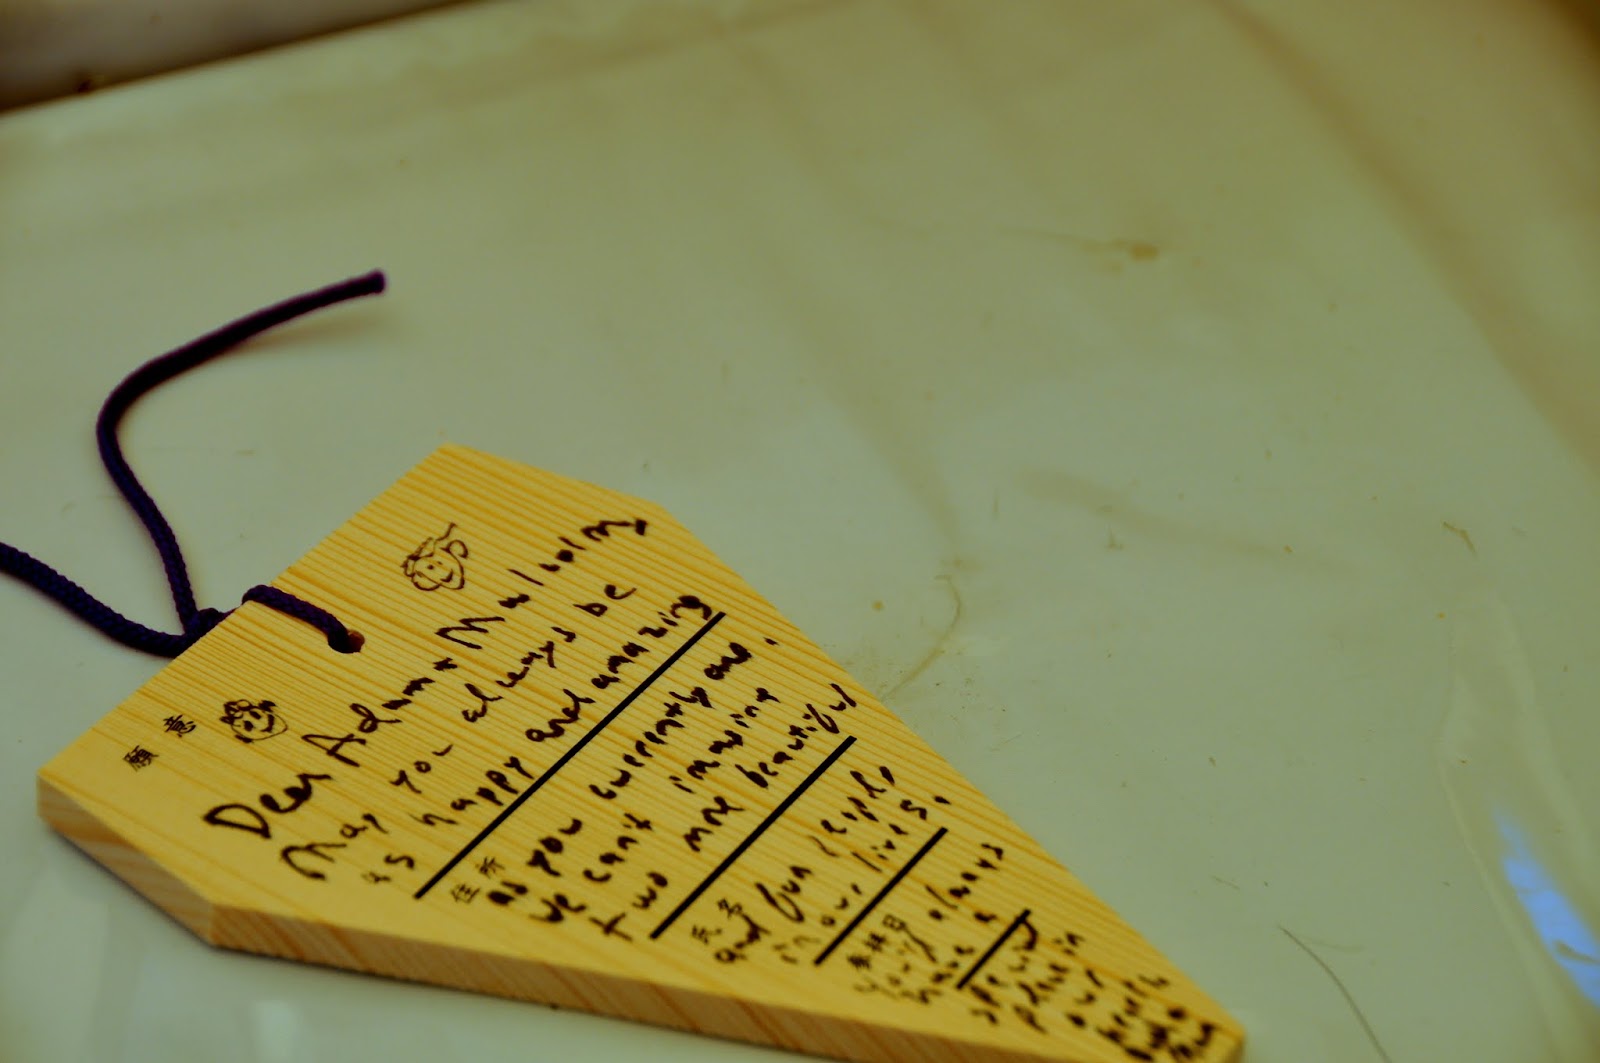 願意
Dear Adam + Mulwolmy
May you always be
as happy and amazing
住所
as you currently are.
We can't imagine
two more beautiful
氏名
and fun people
in our lives.
参拝日
You'll always
have a
special
place in
our
hearts